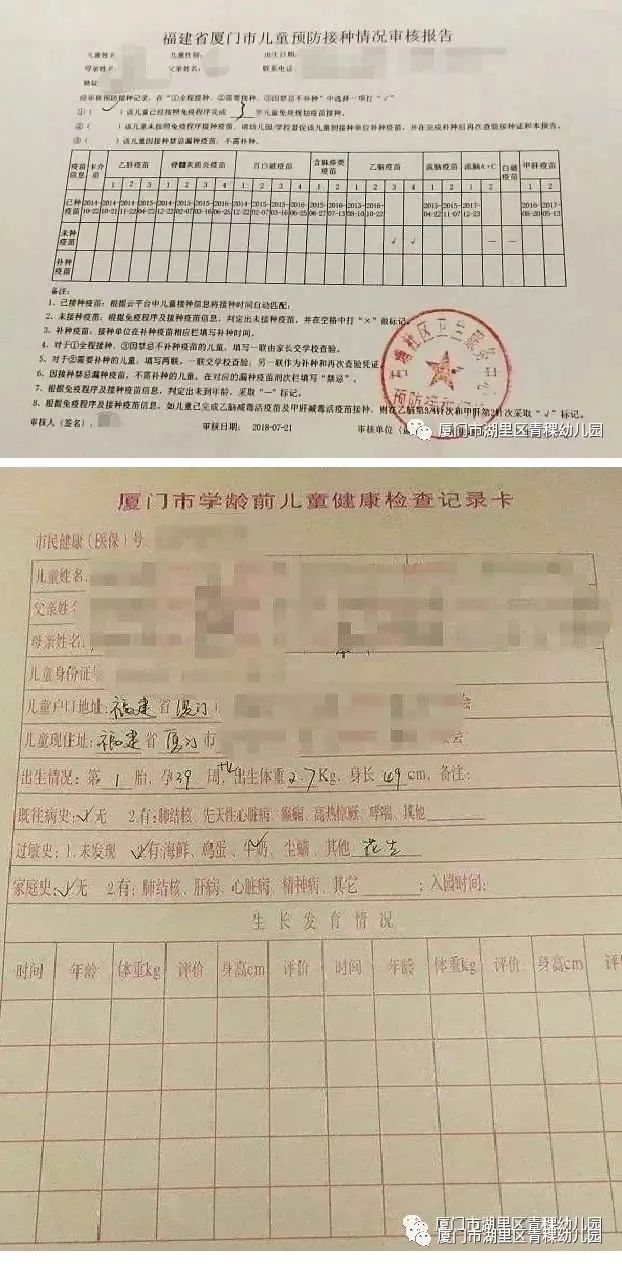 福建省厦门市儿童预防接种情况审核报告
儿童姓名 儿童性别: 出生日期:
母亲姓名 父亲姓名: 联系电话:
地址
经审核预防接种记录,在“①全程接种、②需要接种、③因禁忌不补种”中选择一项打“√”
①( √ )该儿童已经按照免疫程序完成 3 岁儿童免疫规划疫苗接种。
②( )该儿童未按照免疫程序接种疫苗,请幼儿园/学校督促该儿童到接种单位补种疫苗,并在完成补种后再次查验接种证和本报告。
③( )该儿童因接种禁忌漏种疫苗,不需补种。
疫苗信息 卡介苗 乙肝疫苗 脊髓灰质炎疫苗 百白破疫苗 含麻疹类疫苗 乙脑疫苗 流脑疫苗 流脑A+C 白破疫苗 甲肝疫苗
1 2 3 1 2 3 4 1 2 3 4 1 2 1 2 3 4 1 2 1 2 1 2
已种疫苗 2014-10-22 2014-10-21 2014-11-22 2015-04-22 2014-12-22 2015-02-07 2015-03-16 2016-06-25 2014-12-22 2015-02-07 2015-03-16 2016-06-25 2015-06-27 2016-07-13 2015-08-10 2016-10-22 2015-04-22 2015-11-07 2017-12-23 2016-08-20 2017-05-13
未种疫苗 √ √ — —
补种疫苗
备注:
1. 已接种疫苗:根据云平台中儿童接种信息将接种时间自动匹配;
2. 未接种疫苗:根据免疫程序及接种疫苗信息,判定出未接种疫苗,并在空格中打“×”做标记。
3. 补种疫苗:接种单位在补种疫苗相应栏填写补种时间。
4. 对于①全程接种、③因禁忌不补种疫苗的儿童,填写一联由家长交学校查验。
5. 对于②需要补种的儿童,填写两联,一联交学校查验;另一联作为补种和再次查验凭证
6. 因接种禁忌漏种疫苗,不需补种的儿童,在对应的漏种疫苗剂次栏填写“禁忌”。
7. 根据免疫程序及接种疫苗信息,判定出未到年龄,采取“—”标记。
8. 根据免疫程序及接种疫苗信息,如儿童已完成乙脑减毒活疫苗及甲肝减毒活疫苗接种,则在乙脑第3/4针次和甲肝第2针次采取“√”标记。
审核人(签名): 审核日期: 2018-07-21 审核单位(
社区卫生服务中心
预防接种
厦门市湖里区青稞幼儿园
厦门市学龄前儿童健康检查记录卡
市民健康(医保)号
儿童姓名
父亲姓名
母亲姓名
儿童身份证
儿童户口地址:福建省厦门
儿童现住址:福建省厦门市
出生情况:第 1 胎,孕39周+4,出生体重2.7Kg,身长 49 cm,备注:
既往病史:√无 2.有:肺结核、先天性心脏病、癫痫、高热惊厥、哮喘、其他
过敏史:1.未发现 √有:海鲜、鸡蛋、牛奶、尘螨、其他 花生
家庭史:√无 2.有:肺结核、肝病、心脏病、精神病、其它 ;入园时间:
生长发育情况
时间 年龄 体重kg 评价 身高cm 评价 时间 年龄 体重kg 评价 身高cm 评
厦门市湖里区青稞幼儿园
厦门市湖里区青稞幼儿园